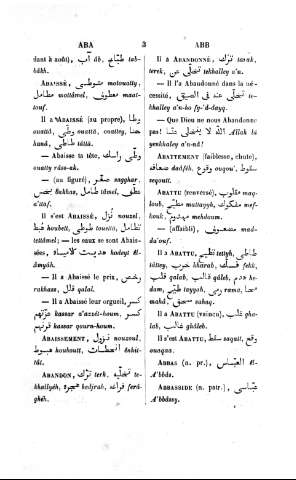 ABA
3
ABB
dant à août), آب âb, طبّاخ tab-
bâkh.
ABAISSÉ, متوطّى motouatty,
مطامل mottâmel, معطوف maat-
touf.
Il a ABAISSÉ (au propre), وطا
ouattâ, وطّى ouattâ, ouatty, حنا
hanâ, طاطى tâttâ.
— Abaisse ta tête, وطّى راسك
ouatty râss-ak.
— (au figuré), صغّر sagghar,
tâmel, نقض
a'ttaf.
Il s'est ABAISSÉ, نزل nouzel,
houbett, طوطى touetti,
tettâmel; — les eaux se sont Abais-
sées
âmyâh.
— Il a Abaissé le prix, رخص
rakhass, قلل qalal.
— Il a Abaissé leur orgueil, كسر
kassar a'zzet-houm, كسر
kassar qourn-houm.
ABAISSEMENT, نزول nouzoul,
هبوط houboutt, انحطاط ênhit-
tât.
ABANDON, ترك terk, تخليّة te-
khallyéh, hedjrah, فراغة ferâ-
ghéh.
Il a ABANDONNÉ, ترك tarak,
terek, تخلّى عن tekhalley a'n.
— Il l'a Abandonné dans la né-
cessité, تخلّى عنه فى الضيق tekhalley
a'n-ho fy-'d-dayq.
— Que Dieu ne nous Abandonne
pas! الله لا يخلّى عنّا Allah lâ
yekhalley a'n-nâ!
ABATTEMENT (faiblesse, chute),
ضعافة sadfléh, وقوع ouqou', سقوط
souqoutt.
ABATTU (renversé), مقلوب maq-
loub, متطيّح muttayyh, مفكوك mef-
houk, مهدوم mehdoum.
— (affaibli), مضعوف mad-
da'ouf.
Il a ABATTU, طيّح tettyh, طاطى
tâttey, خرب khârab, فسك fekk,
قلب qalab, غلب ghâleb, هدم he-
dam, طيّح tayyah, رمى rama,
mahâ, سحق sahaq.
Il a ABATTU (vaincu), غلب gha-
lab, غالب ghâleb.
Il s'est ABATTU, سقط saqatt, وقع
ouaqaa.
ABBAS (n. pr.), العبّاس êl-
A'bbâs.
ABBASSIDE (n. patr.), عبّاسى
A'bbâssy.